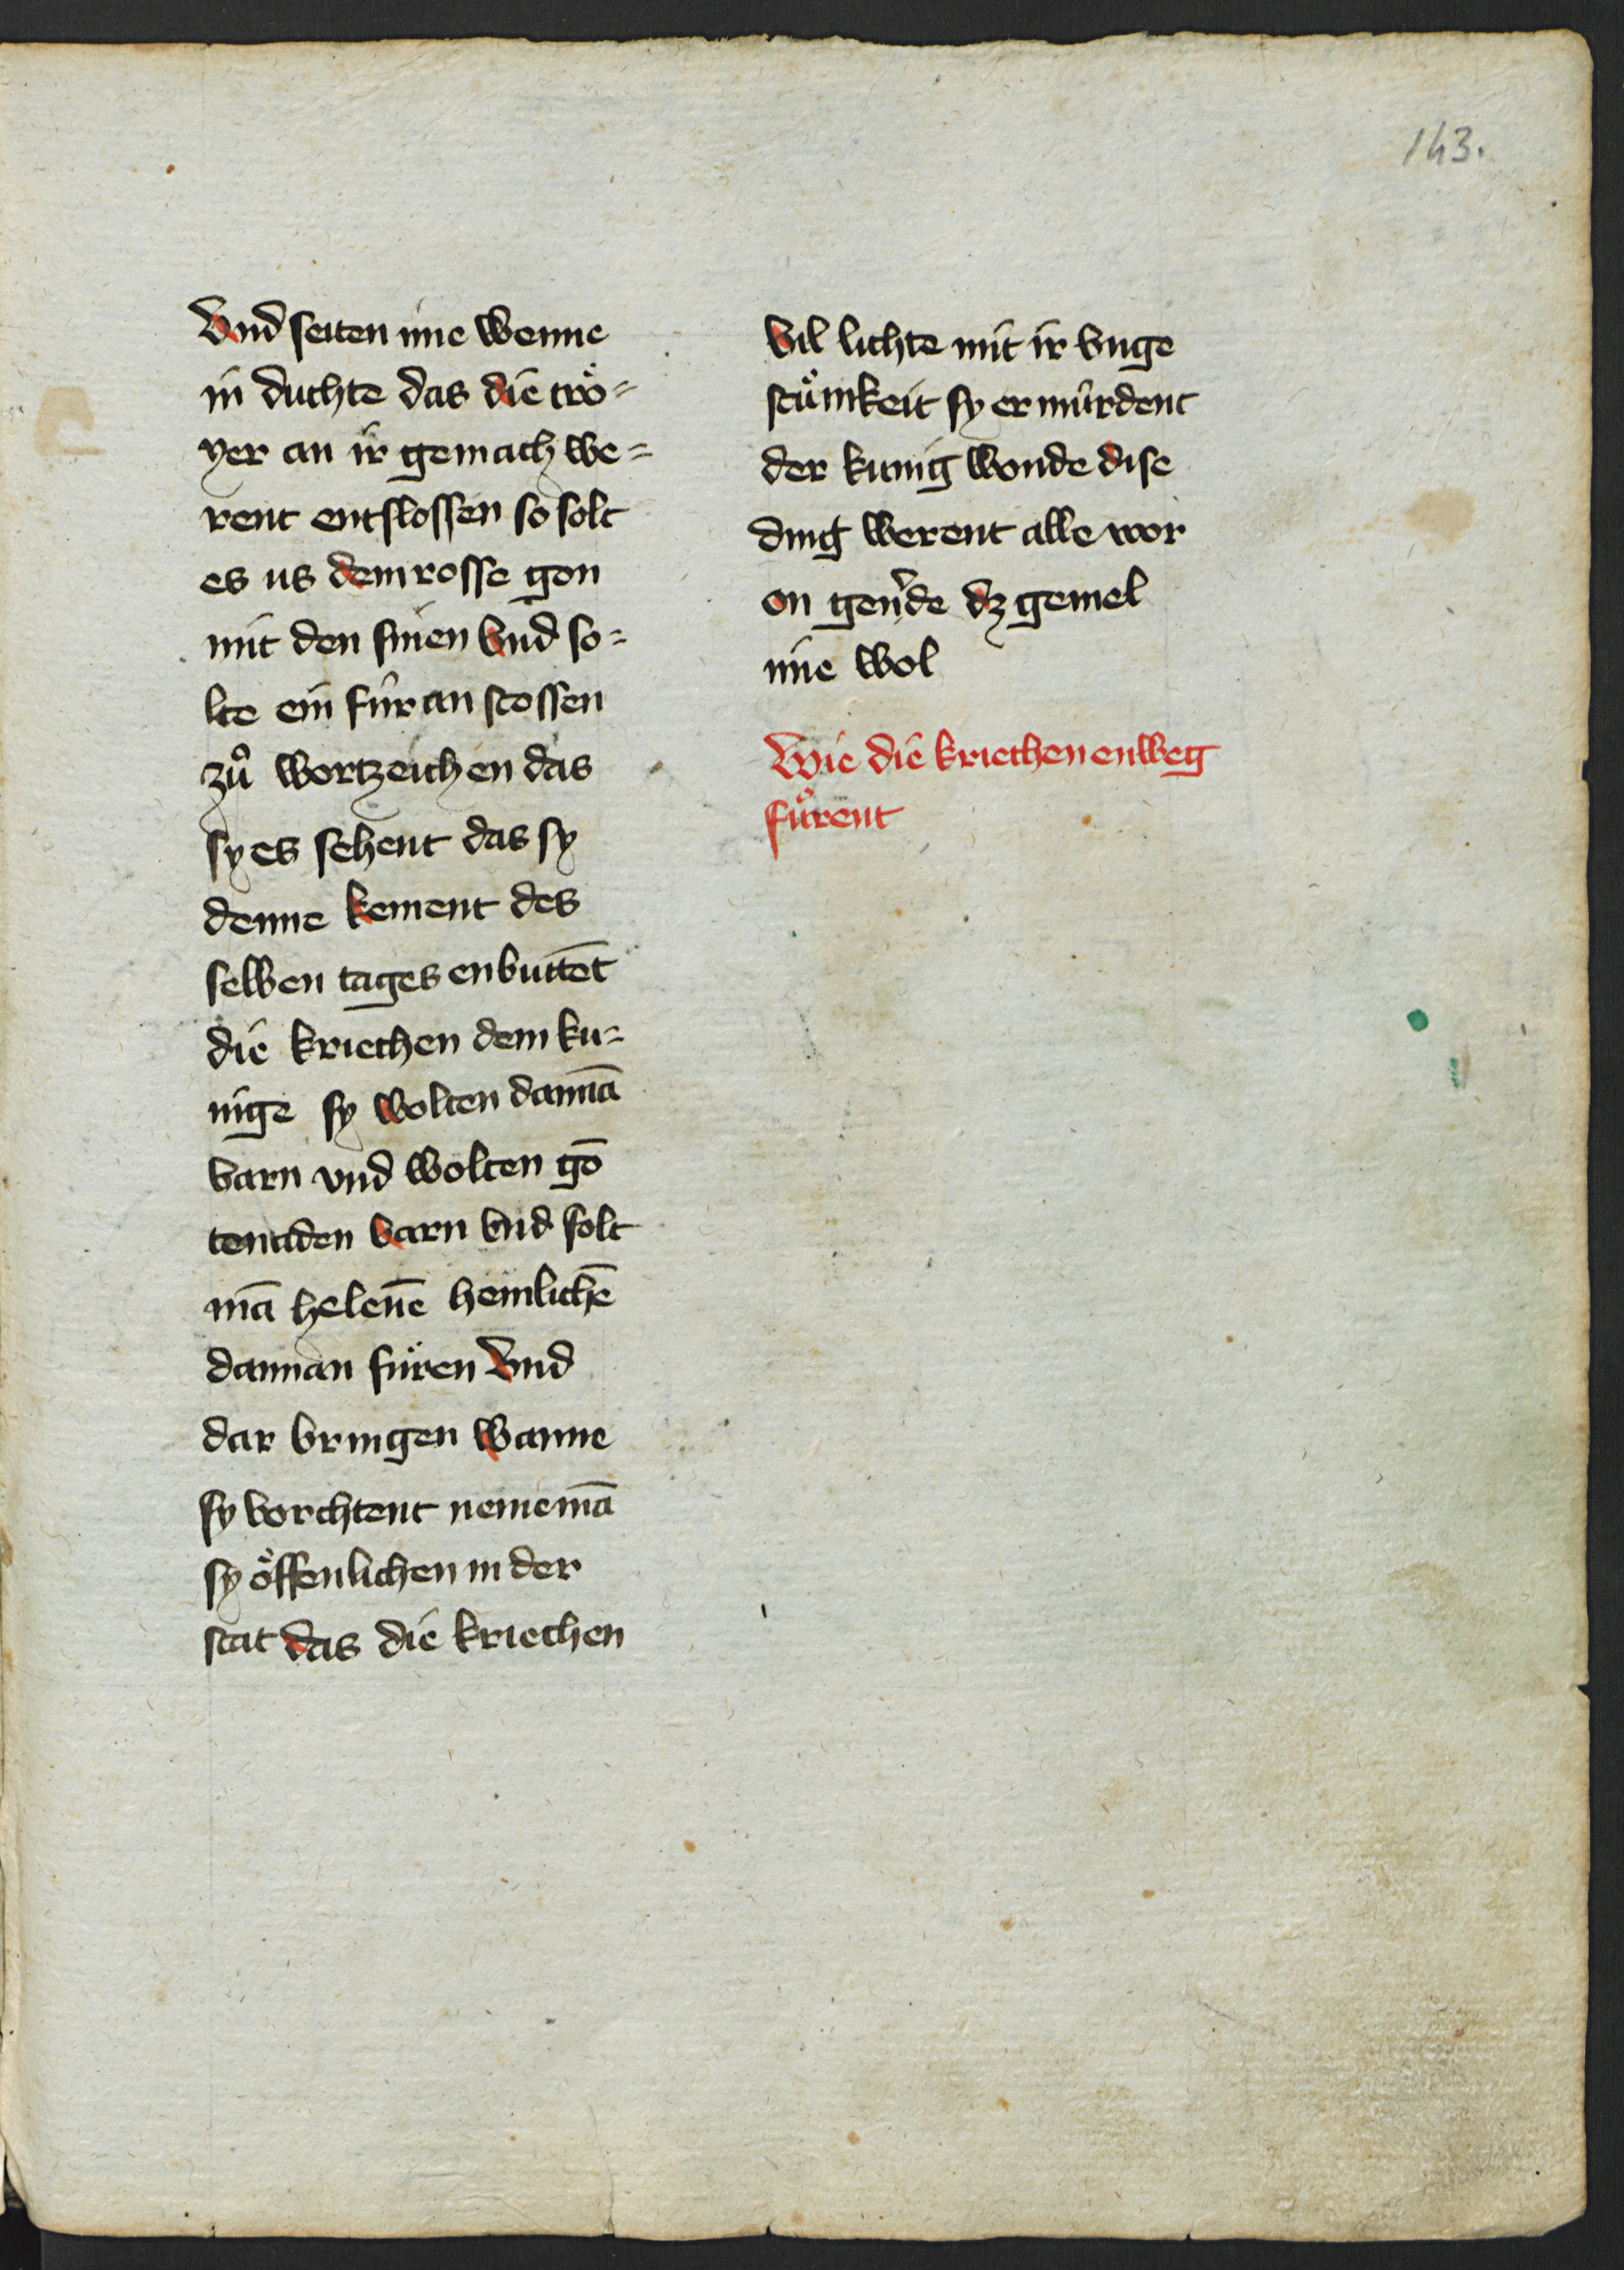 143.
Vnd seiten ime wenne
in duchte das die trö=
yer an ir gemach we=
rent entslossen so solt
es us dem rosse gon
mit den sinen vnd so=
lte ein für an stossen
zů wortzeichen das
sy es sehent das sy
denne kement des
selben tages enbuttēt
die kriechen dem ku=
nige sy wolten dannā
varn vnd wolten gō
tenaden varn vnd solt
mā helenē heinlichē
dannan füren vnd
dar bringen wanne
sy vorchtent neme mā
sy öffenlichen in der
stat das die kriechen
vil lichte mit ir vnge
stümkeit sy ermürdent
der kunig wonde dise
ding werent alle wor
on geu͛de dz geuiel
ime wol
Wie die kriechen enweg
fůrent